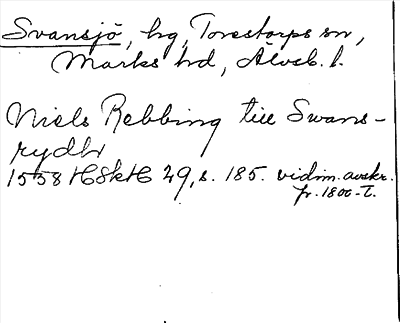 Svansjö, hg, Torestorps sn,
Marks hd, Älvsb. l.
Niels Rebbing till Swans-
rydhr
1558 HSkH 29, s. 185. vidim. avskr.
fr. 1800-t.